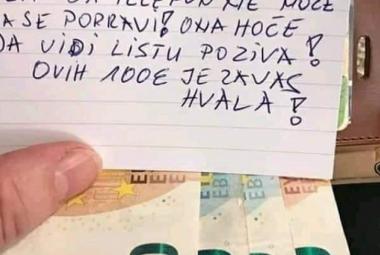 DA TELEFON NE MOŽE
DA SE POPRAVI! ONA HOĆE
DA VIDI LISTU POZIVA!
OVIH 100€ JE ZA VAS
HVALA!